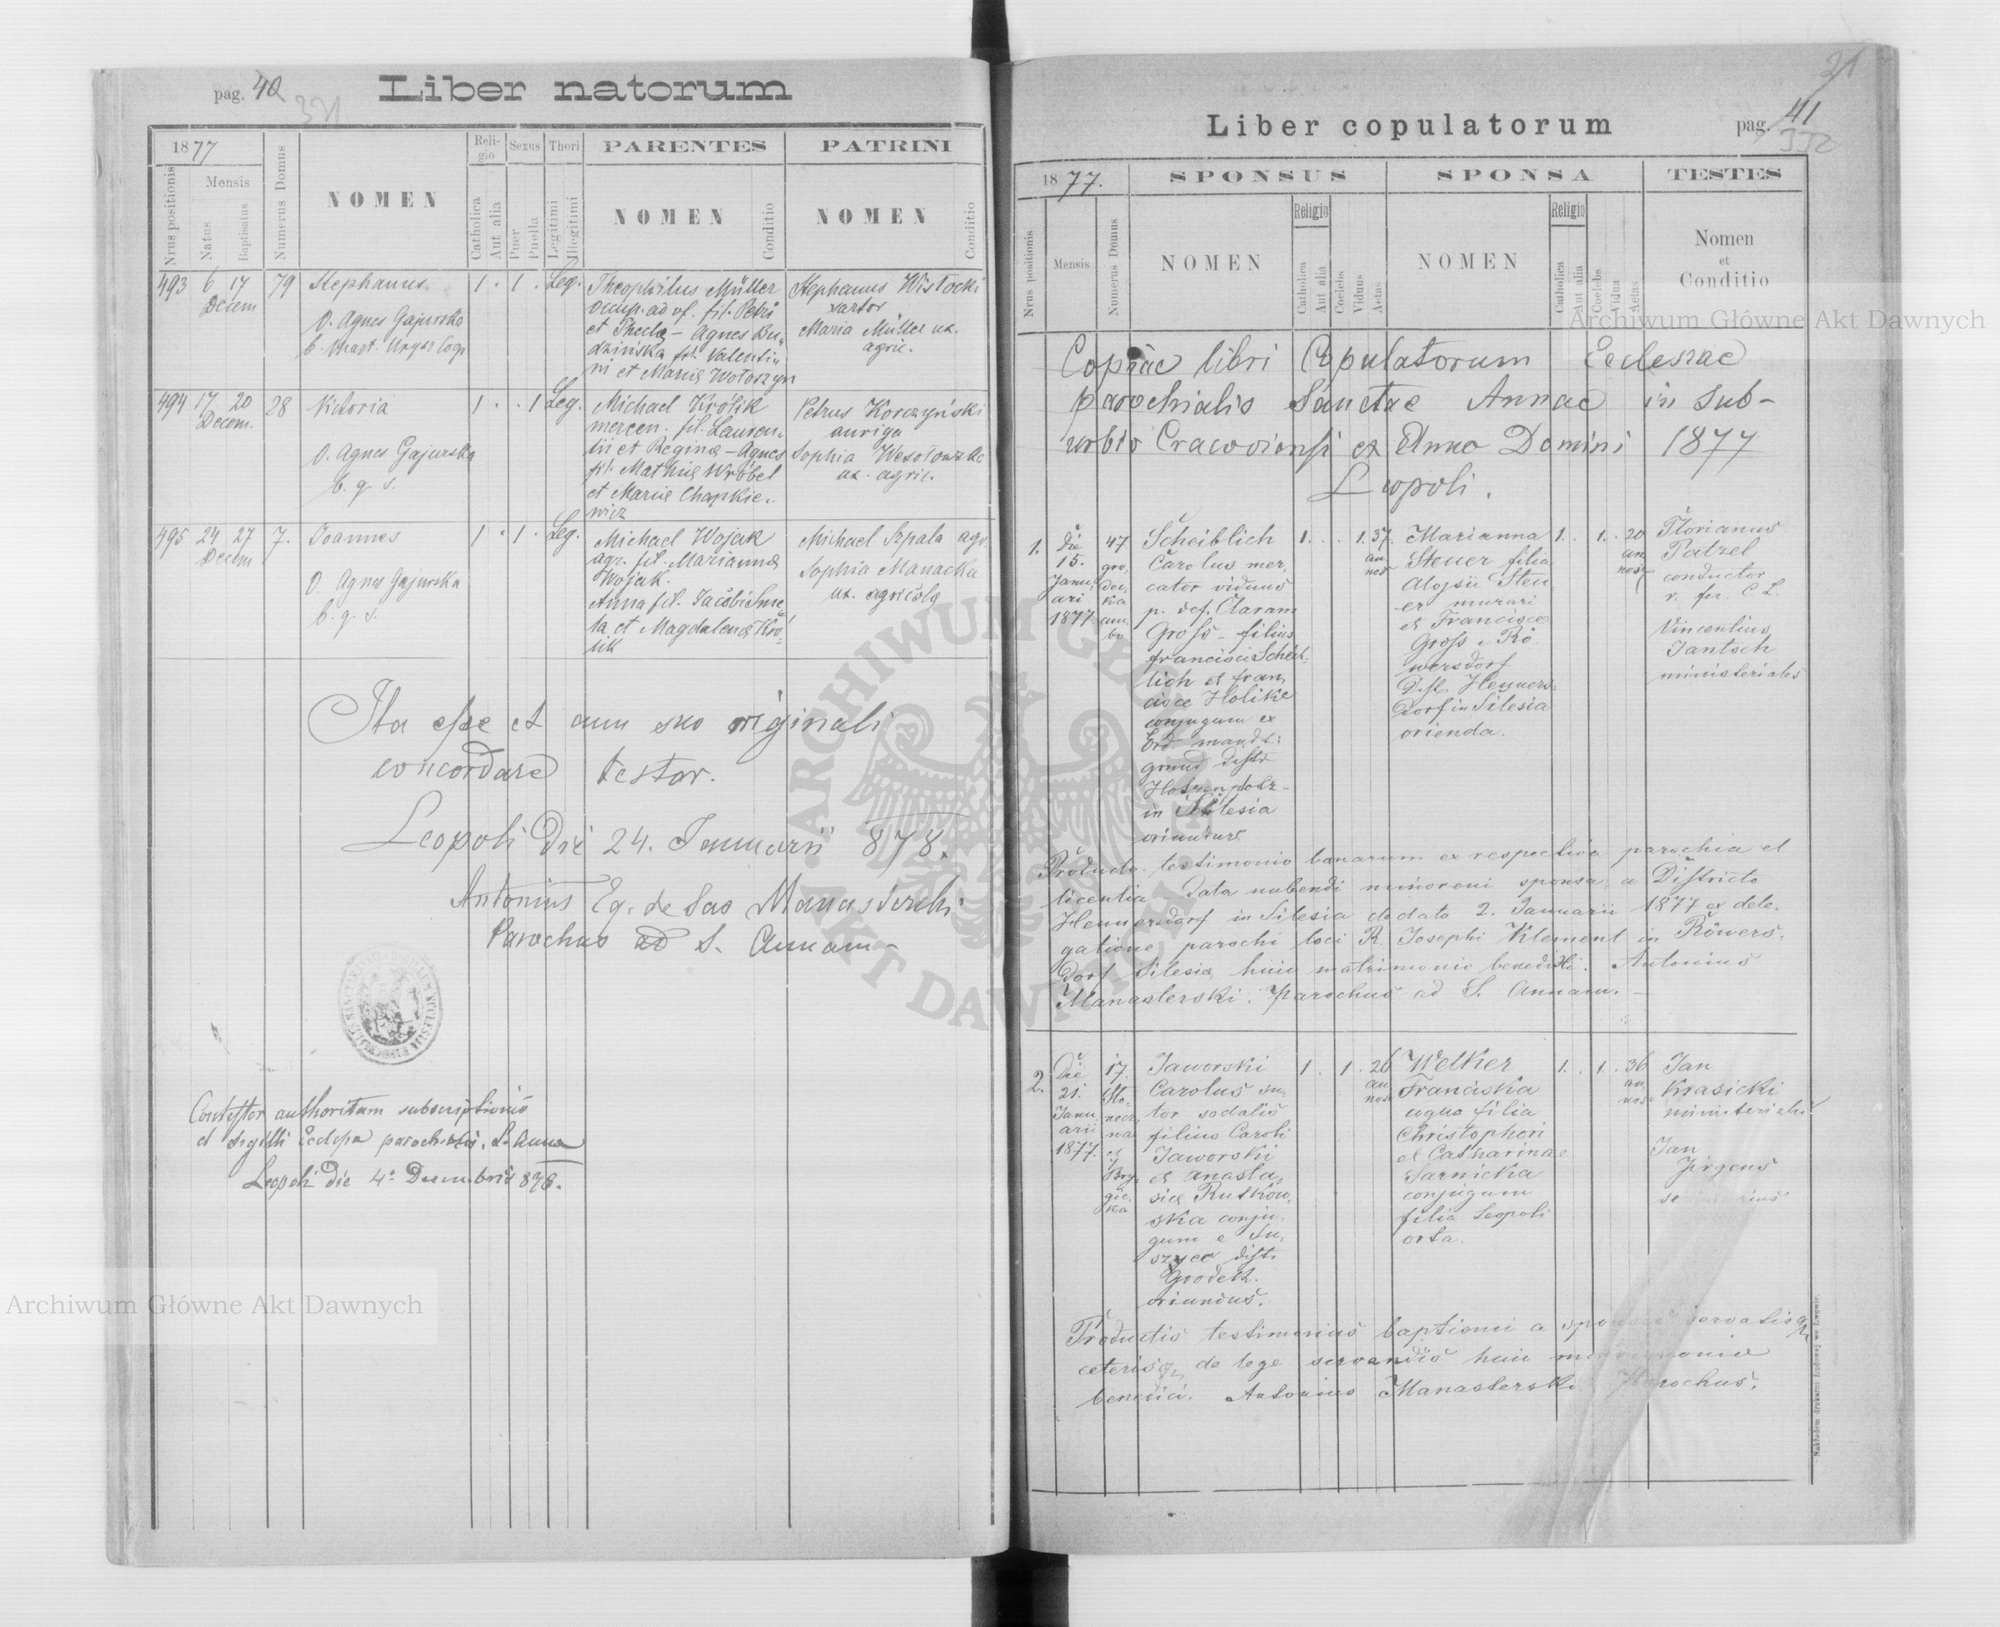 pag. 40
331
Liber natorum
1877
Nrus positionis
Mensis
Natus
Baptisatus
Numerus Domus
NOMEN
Reli-
gio
Catholica
Aut alia
Sexus
Puer
Puella
Thori
Legitimi
Illegitimi
PARENTES
NOMEN
Conditio
PATRINI
NOMEN
Conditio
493 6 17
Decem
79
Stephanus
O. Agnes Gajurska
1 . 1 . Leg.
Theophilus Müller
occup. ad vf. fil. Petri
et Theclę – Agnes Bu-
dzińska fil. Valenti-
ni et Marię Wołoszyn
Stephanus Wisłocki
sartor
Maria Müller ux.
agric.
494 17 20
Decem.
28
Victoria
O. Agnes Gajurska
b. q. s.
1 . . 1 Leg.
Michael Krolik
mercen. fil. Lauren-
tii et Reginę – Agnes
fil. Mathię Wróbel
et Marię Chapkie-
wicz
Petrus Korczyński
auriga
Sophia Wesołowska
ux. agric.
495 24 27
Decem
7.
Joannes
O. Agnes Gajurska
b. q. s.
1 . 1 . Leg.
Michael Wojak
agr. fil. Mariannę
Wojak.
Anna fil. Jacobi Sme-
ta et Magdalenę Kró-
lik
Michael Szpala agr
Sophia Manacka
ux. agricolę
Ita esse et cum suo originali
concordare testor.
Leopoli die 24. Januarii 878.
Antonius Eq. de Sas Manasterski
Parochus ad S. Annam –
Contestor authoritam subscriptionis
et sigilli Ecclesiæ parochialis S. Annæ
Leopoli die 4ª Decembris 878.
21
pag. 41
332
Liber copulatorum
1877.
Nrus positionis
Mensis
Numerus Domus
SPONSUS
NOMEN
Religio
Catholica
Aut alia
Coelebs
Viduus
Aetas
SPONSA
NOMEN
Religio
Catholica
Aut alia
Coelebs
Vidua
Aetas
TESTES
Nomen
et
Conditio
Copiae libri Copulatorum Ecclesiae
parochialis Sanctae Annae in sub-
urbio Cracoviensi ex Anno Domini 1877
Leopoli.
1.
Die
15.
Janu-
arii
1877
47
gro-
dec-
ka
am-
bo
Scheiblich
Carolus mer-
cator viduus
p. def. Claram
Gross – filius
Francisci Scheib-
lich et Fran-
ciscę Holike
conjugum ex
grund distr
Hotzenplotz –
in Silesia
oriundus.
1. . . 1. 37.
an-
nos
Marianna
Steuer filia
Aloysii Steu-
er murari
et Franciscę
Gross e Rö-
wersdorf
Distr Henners-
dorf in Silesia
orienda.
1. . 1. . 20
an
nos
Florianus
Patzel
conductor
v. fer. C. L.
Vincentius
Jantsch
ministeriales
Producto testimonio banorum ex respectiva parochia et
licentia data nubendi minoreni sponsa a Districto
Hennersdorf in Silesia de dato 2. Januarii 1877 ex dele-
gatione parochi loci R. Josephi Klement in Röwers-
dorf Silesia huic matrimonio benedixi. Antonius
Manasterski. Parochus ad S. Annam. –
2.
Die
21.
Janu-
arii
1877.
17.
Sło-
necz-
na
et
7
Bry-
gic-
ka
Jaworski
Carolus su-
tor sodalis
filius Caroli
Jaworski
et Anasta-
się Rutkow-
ska conju-
gum e Su-
szyca distr
Grodeck.
oriundus.
1 . 1 . 26
an
nos
Welker
Franciska
coqua filia
Christophori
et Catharinae
Sarnicka
conjugum
filia Leopoli
orta.
1. . 1. . 36
an
nos
Jan
Krasicki
ministeriales
Jan
Jirgens
Productis testimoniis baptismi a sponsis servatisq
ceterisq de lege servandis huic matrimonio
benedixi. Antonius Manasterski. Parochus.
Nakładem drukarni Ludowej we Lwowie.
Archiwum Główne Akt Dawnych
Archiwum Główne Akt Dawnych
ARCHIWUM GŁÓWNE AKT DAWNYCH